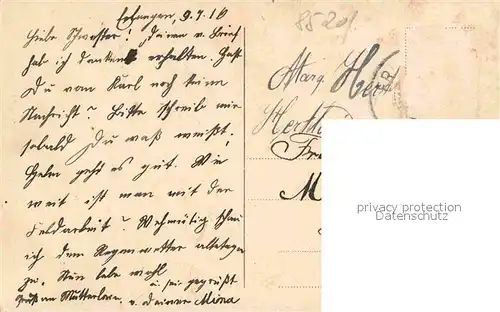 Erlangen, 9.7.16
Liebe Schwester! Deinen l. Brief
hab ich dankend erhalten. Hast
Du vom Karl noch keine
Nachricht? Bitte schreib mir
sobald Du was weißt.
geht es gut. Wie
weit ist man mit der
Feldarbeit? Wehmütig schau
ich dem Regenwetter
zu. Nun lebe wohl
u. sei gegrüßt
v. Deiner Mina
Gruß an
8520
Marg. Her
M
privacy protection
Datenschutz